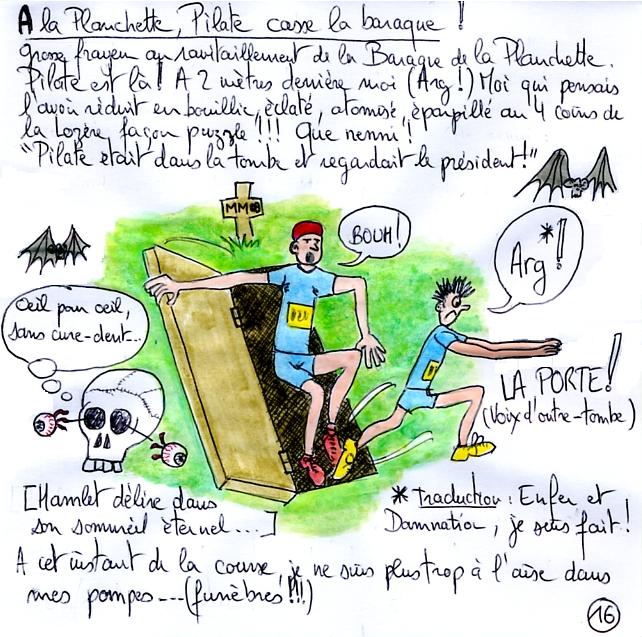 A la Planchette, Pilate casse la baraque !
Grosse frayeur au ravitaillement de la Baraque de la Planchette.
Pilate est là ! A 2 mètres derrière moi (Arg !) Moi qui pensais
l'avoir réduit en bouillie, éclaté, atomisé, éparpillé au 4 coins de
la Lozère façon puzzle !!! Que nenni !
"Pilate était dans la tombe et regardait le président !"
MM08
BOUH !
Arg* !
Oeil pour oeil,
sans cure-dent...
LA PORTE !
(Voix d'outre-tombe)
[Hamlet délire dans
son sommeil éternel....]
* Traduction : Enfer et
Damnation, je suis fait !
A cet instant de la course, je ne suis plus trop à l'aise dans
mes pompes...(funèbres !!!)
16